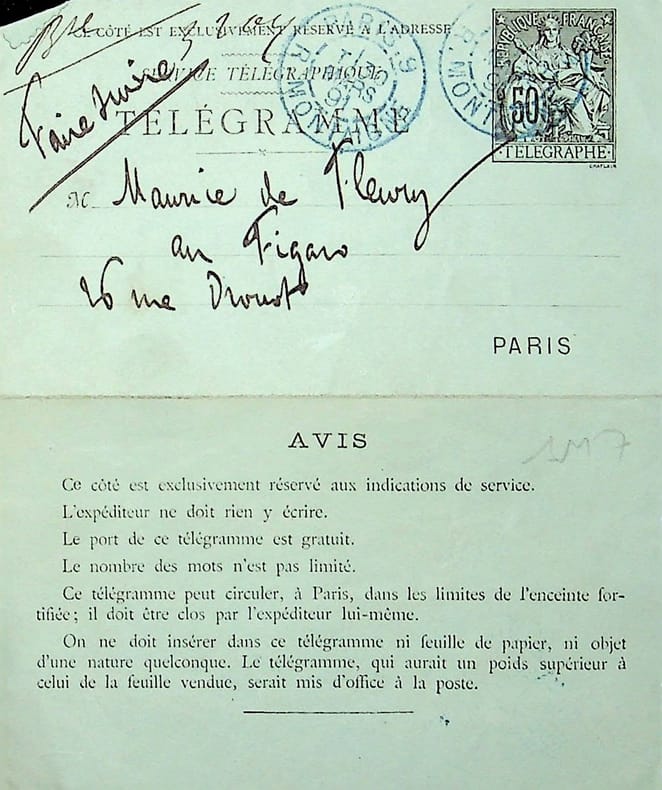 CE CÔTÉ EST EXCLUSIVEMENT RÉSERVÉ A L'ADRESSE
SERVICE TÉLÉGRAPHIQUE
TÉLÉGRAMME
Faire suivre
PARIS 9
R MONTAIGNE
RÉPUBLIQUE FRANÇAISE
50
TELEGRAPHE
CHAPLAIN
M Maurice de Fleury
au Figaro
26 rue Drouot
PARIS
AVIS
Ce côté est exclusivement réservé aux indications de service.
L'expéditeur ne doit rien y écrire.
Le port de ce télégramme est gratuit.
Le nombre des mots n'est pas limité.
Ce télégramme peut circuler, à Paris, dans les limites de l'enceinte for-
tifiée; il doit être clos par l'expéditeur lui-même.
On ne doit insérer dans ce télégramme ni feuille de papier, ni objet
d'une nature quelconque. Le télégramme, qui aurait un poids supérieur à
celui de la feuille vendue, serait mis d'office à la poste.